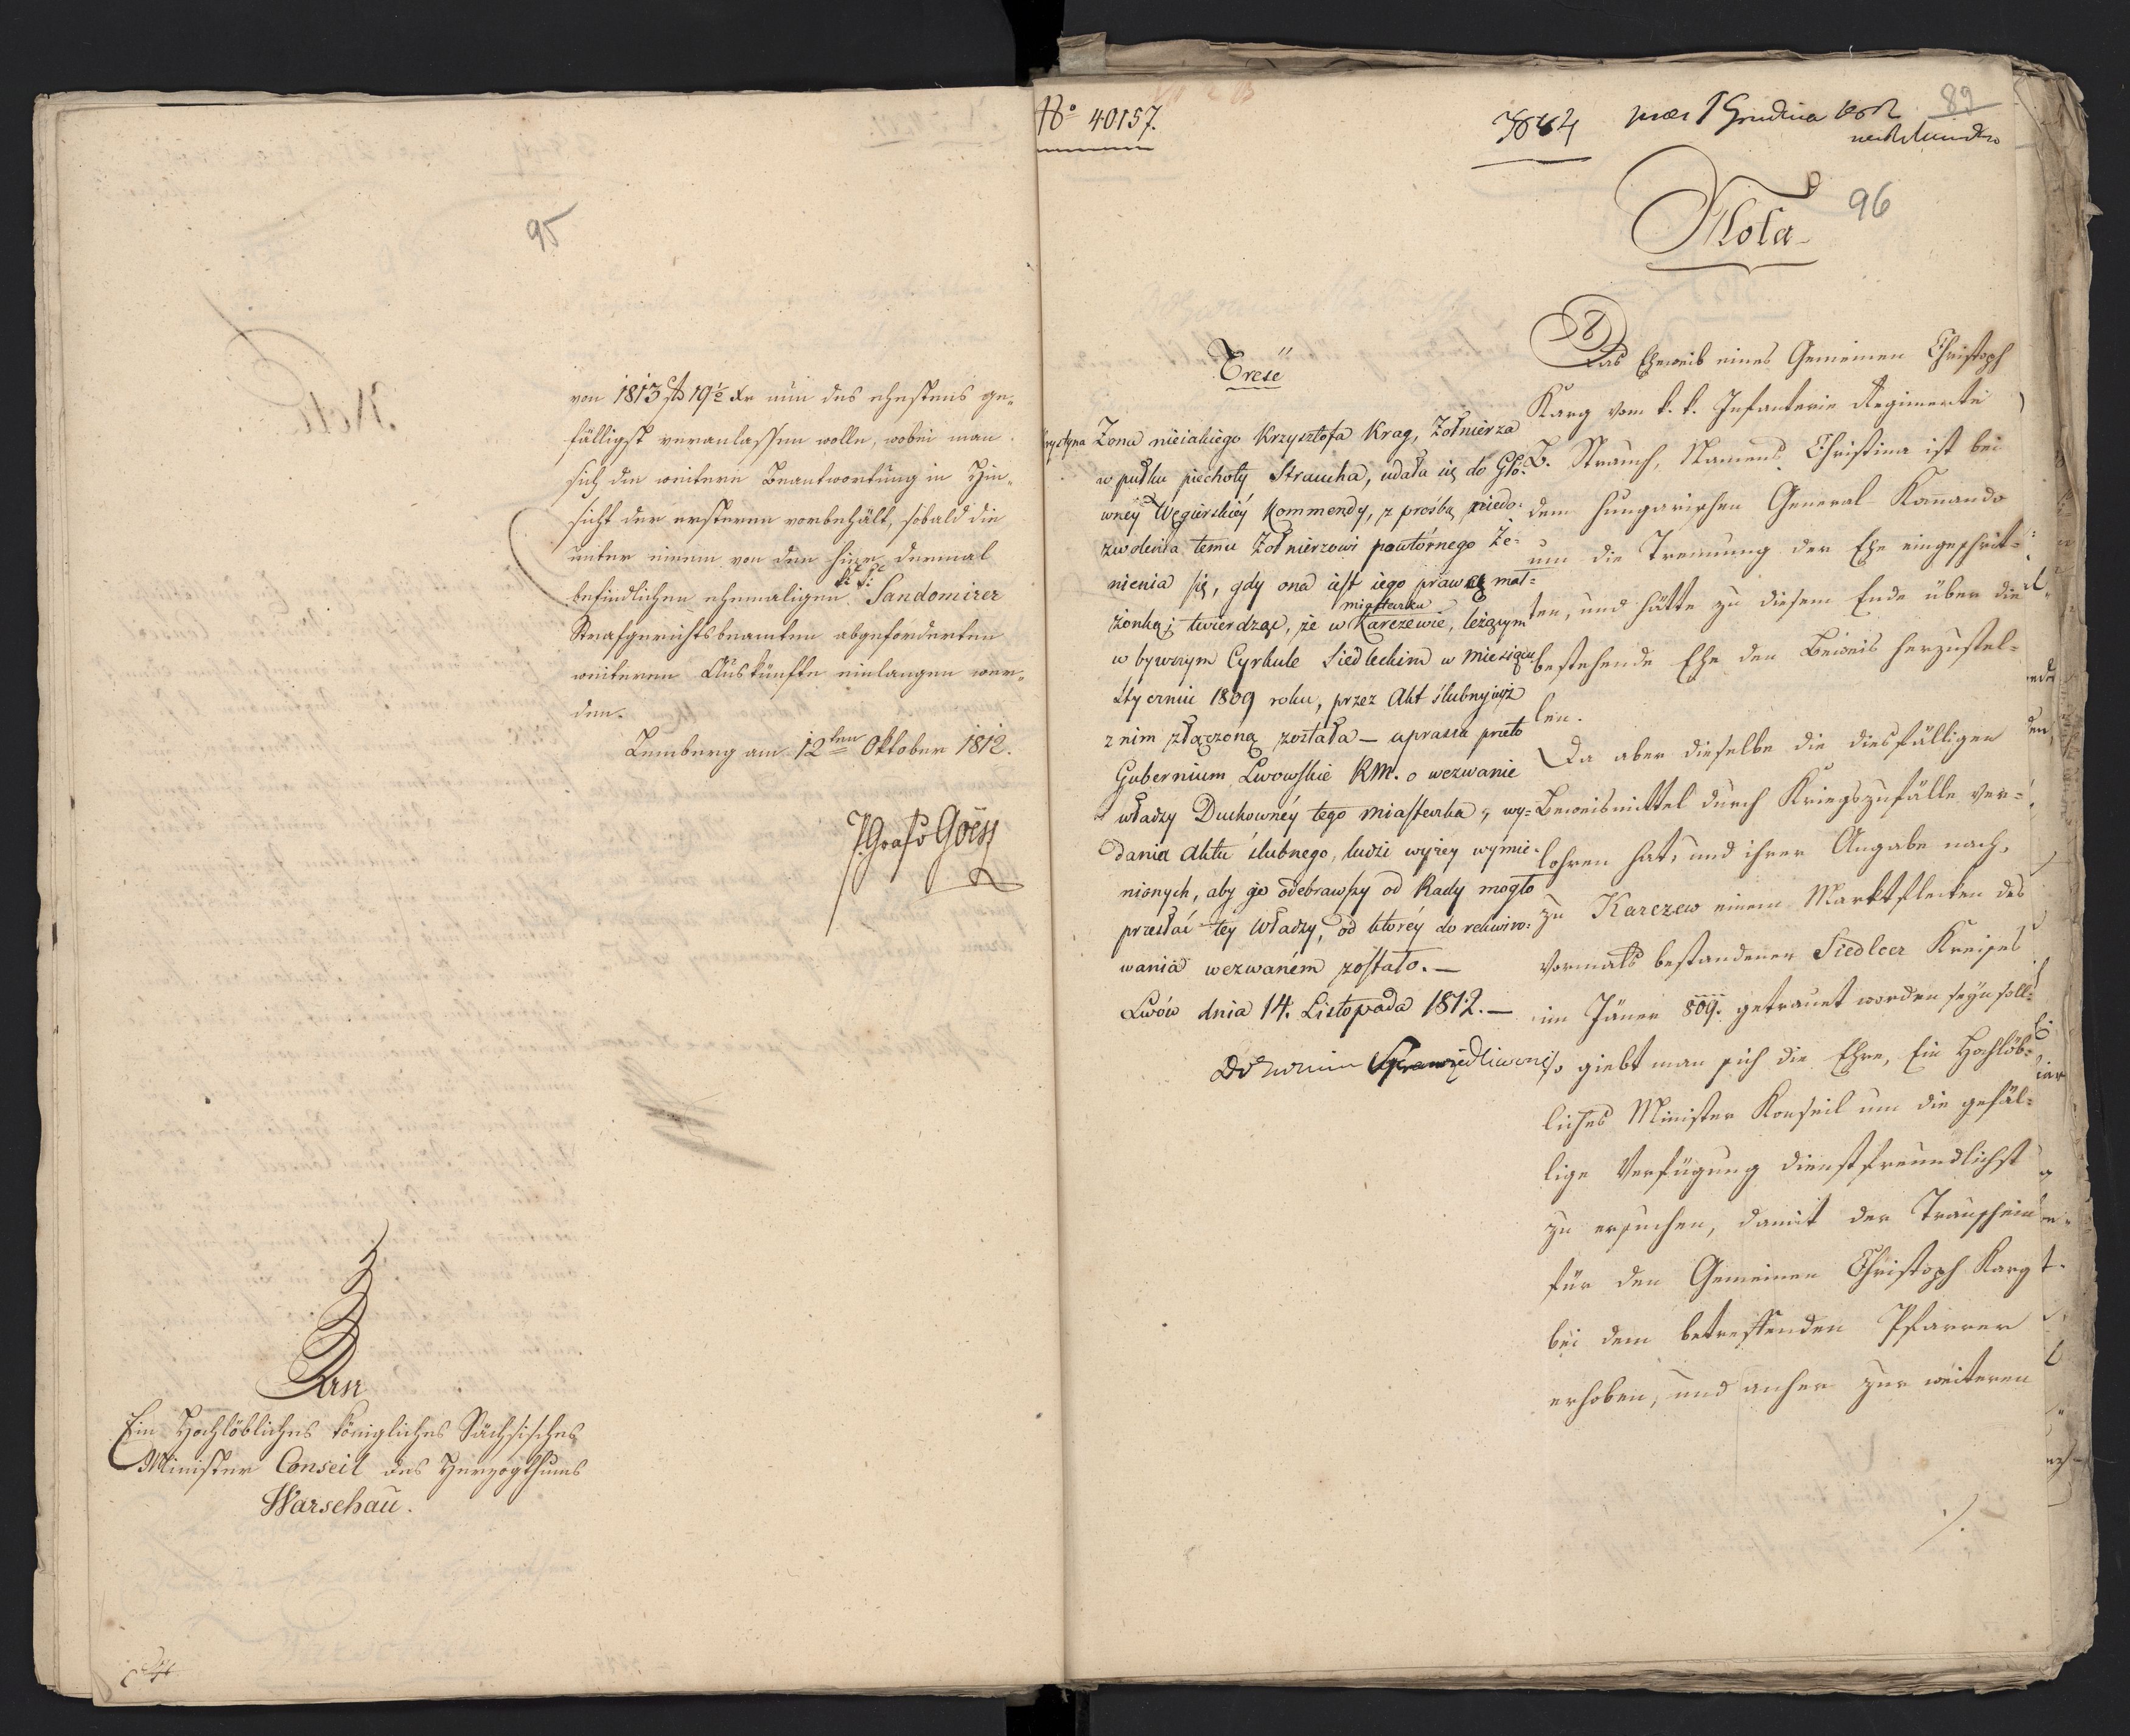 95
von 1813 f 19½ xr nun des ehestens ge„
fälligst veranlassen wolle, wobei man
sich die weitere Beantwortung in Hin„
sicht der ersteren vorbehält, sobald die
unter einem von den hier dermal
befindlichen ehemaligen Sandomirer
Strafgerichtsbeamten abgeforderten
weiteren Auskünfte einlangen wer„
den.
Lemberg am 12ten Oktober 1812.
P. Graf v Goëss
An
Ein Hochlöbliches königliches Sächsisches
Minister Conseil des Herzogthums
Warschau.
No 40157.
præs 1 Grudnia
89
96
Nota
Treść
Krystyna Żona nieiakiego Krzysztofa Krag, Żołnierza
w pułku piechoty Straucha, udała się do Głó=
wnéy Węgierskiéy Kommendy, z prośbą niedo=
zwolenia temu Żołnierzowi powtórnego Że=
nienia się, gdy ona iest iego prawą mał=
żonką; twierdząc, że w miasteczku Karczewie, leżącym
w bywszym Cyrkule Siedleckim w Miesiącu
Styczniu 1809 roku, przez Akt ślubny iuż
z nim złączoną została — uprasza przeto
Gubernium Lwowskie RM. o wezwanie
władzy Duchownéy tego Miasteczka, wy=
dania Aktu ślubnego, ludzi wyżey wymie=
nionych, aby go odebrawszy od Rady mogło
przesłać tey Władzy, od któréy do rekwiro=
wania wezwaném zostało. —
Lwów dnia 14. Listopada 1812. —
Sprawiedliwości
Das Eheweib eines Gemeinen Christoph
Karg vom k. k. Infanterie Regimente
B. Strauch, Namens Christina ist bei
dem hungarischen General Komando
um die Trennung der Ehe eingeschrit=
ten, und hätte zu diesem Ende über die
bestehende Ehe den Beweis herzustel=
len.
Da aber dieselbe die diesfälligen
Beweismittel durch Kriegszufälle ver=
lohren hat, und ihrer Angabe nach,
zu Karczew einem Marktflecken des
vormals bestandenen Siedlcer Kreises
im Jäner 809. getrauet worden seyn soll=
so giebt man sich die Ehre, Ein Hochlöb=
liches Minister Konseil um die gefäl=
lige Verfügung dienstfreundlichst
zu ersuchen, damit der Trauschein
für den Gemeinen Christoph Karg
bei dem betreffenden Pfarrer
erhoben, und anher zur weiteren
./.